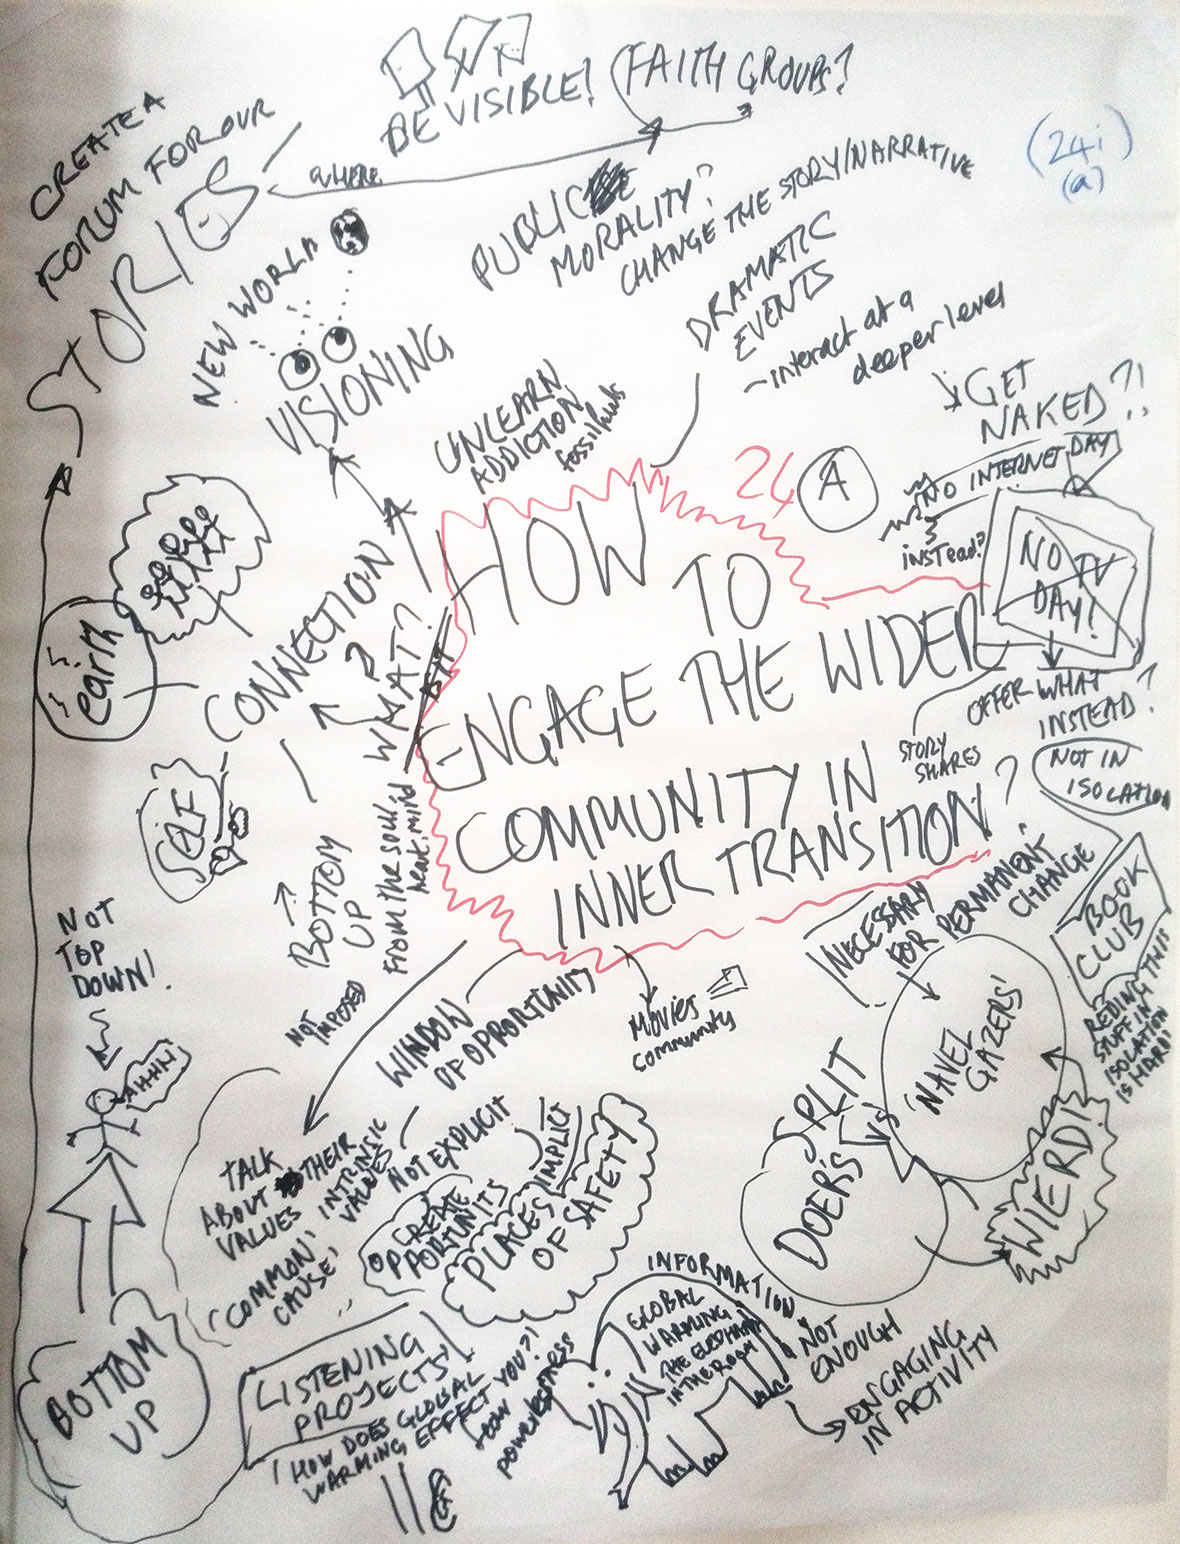 CREATE A
FORUM FOR OUR
STORIES
WHERE
BE VISIBLE!
(FAITH GROUPS?
(24i)
(a)
PUBLIC
MORALITY?
CHANGE THE STORY/NARRATIVE
DRAMATIC
EVENTS
- interact at a
deeper level
GET
NAKED?!
NO INTERNET DAY
instead?
NO TV
DAY!
OFFER WHAT
INSTEAD?
NOT IN
ISOLATION
BOOK
CLUB
REDING THIS
STUFF IN
ISOLATION
IS HARD!
NEW WORLD
VISIONING
UNLEARN
ADDICTION
fossil fuels
24
A
HOW
TO
ENGAGE THE WIDER
COMMUNITY IN
INNER TRANSITION?
STORY
SHARES
earth
CONNECTION
WHAT?
SELF
BOTTOM
UP
NOT
IMPOSED
From the soul,
heart, mind
NOT
TOP
DOWN!
AHHHH
BOTTOM
UP
WINDOW
OF OPPORTUNITY
Movies
community
NECESSARY
FOR PERMANENT
CHANGE
SPLIT
DOERS
VS
'NAVEL
GAZERS'
WIERD!?
TALK
ABOUT THEIR
VALUES
INTRINSIC
VALUES
'COMMON
CAUSE'
NOT EXPLICIT
IMPLICIT
CREATE
OPPORTUNITS
PLACES
OF SAFETY
LISTENING
PROJECTS'
'HOW DOES GLOBAL
WARMING EFFECT YOU?!
powerlessness
GLOBAL
WARMING
THE ELEPHANT
IN THE ROOM
INFORMATION
NOT
ENOUGH
ENGAGING
IN ACTIVITY